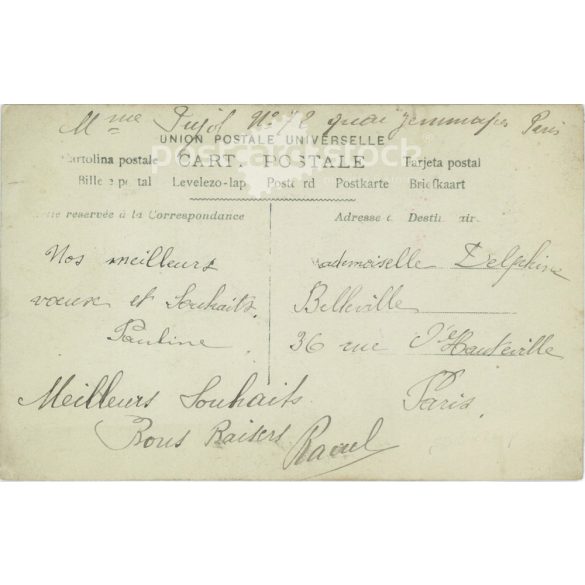 Mme Pujol No 72 quai Jemmapes Paris
UNION POSTALE UNIVERSELLE
Cartolina postale CART. POSTALE Tarjeta postal
Bille e postal Levelezo-lap Postc rd Postkarte Briefkaart
tie reservée à la Correspondance Adresse d Destin air
Nos meilleurs
vœux et Souhaits
Pauline
Mademoiselle Delphine
Belleville
36 rue d'Hauteville
Paris
Meilleurs Souhaits
Bons Baisers Raoul